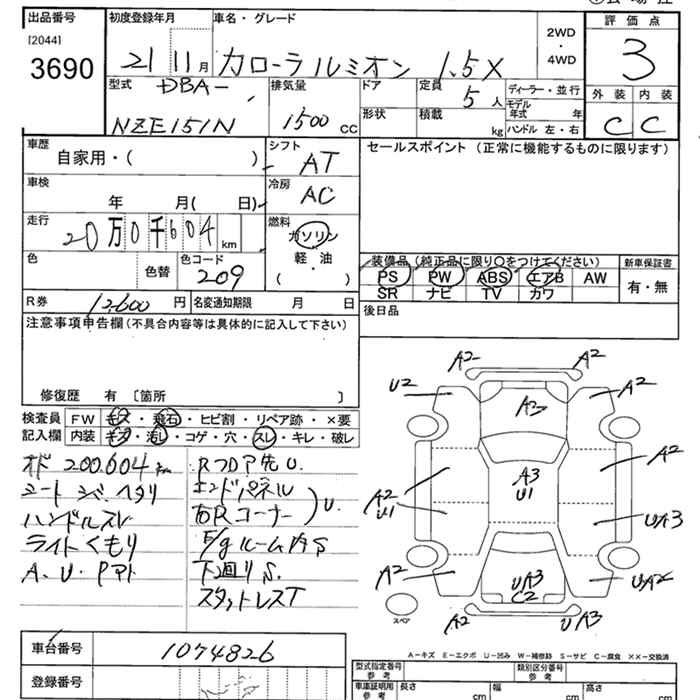 出品番号
[2044]
3690
初度登録年月
21 11月
車名・グレード
カローラルミオン 1.5X
2WD
・
4WD
評価点
3
型式
DBA-
NZE151N
排気量
1500 CC
ドア
形状
定員 5 人
積載 kg
ディーラー・並行
モデル年式 年
ハンドル 左・右
外装 内装
C C
車歴
自家用・( )
シフト AT
セールスポイント (正常に機能するものに限ります)
車検
年 月( 日)
冷房 AC
走行
20万0千604 km
燃料
ガソリン
軽・油
( )
色
色替
色コード
209
装備品 (純正品に限り○をつけてください)
PS PW ABS エアB AW
SR ナビ TV カワ
新車保証書
有・無
R券 12,600 円
名変通知期限 月 日
後日品
注意事項申告欄 (不具合内容等は具体的に記入して下さい)
修復歴 有 〔箇所 〕
検査員 FW キズ・飛石・ヒビ割・リペア跡・×要
記入欄 内装 キズ・汚し・コゲ・穴・スレ・キレ・破レ
オド 200.604km
シート シバ、ヘタリ
ハンドルスレ
ライトくもり
A.U.Pマト
RフDア先U.
エンドパネル
右Rコーナー
U.
F/gルーム内S
下廻りS.
スタットレスT
A2 A2
U2 A2
A2
A2
A2
U1
A3
U1
UA3
A2
UA3
C2
UA2
A2 UA3
スペア
A-キズ E-エクボ U-凹み W-補修跡 S-サビ C-腐食 ××-交換済
車台番号 1074826
登録番号
型式指定番号
参考
類別区分番号
参考
車庫証明用
参考
長さ cm
幅 cm
高さ cm